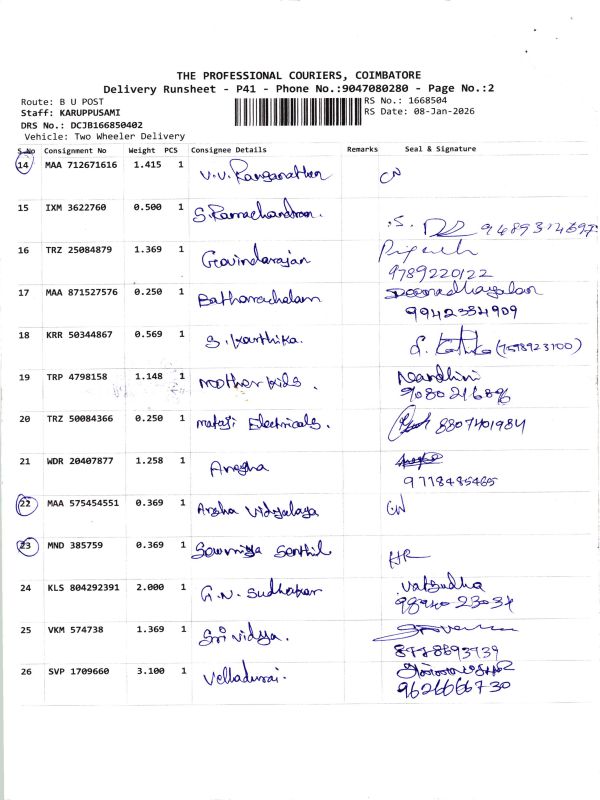 THE PROFESSIONAL COURIERS, COIMBATORE
Delivery Runsheet - P41 - Phone No.:9047080280 - Page No.:2
Route: B U POST
RS No.: 1668504
Staff: KARUPPUSAMI
RS Date: 08-Jan-2026
DRS No.: DCJB166850402
Vehicle: Two Wheeler Delivery
S.No Consignment No Weight PCS Consignee Details Remarks Seal & Signature
14 MAA 712671616 1.415 1 V.V. Ranganathan CN
15 IXM 3622760 0.500 1 S. Ramachandran.
16 TRZ 25084879 1.369 1 Govindarajan
9789220122
17 MAA 871527576 0.250 1 Bathrachalam Deenadhayalan
9942334909
18 KRR 50344867 0.569 1 S. Karthika.
19 TRP 4798158 1.148 1 Mother kids. Nandhini
20 TRZ 50084366 0.250 1 Mataji Electricals. 8807401984
21 WDR 20407877 1.258 1 Anagha
9718485465
22 MAA 575454551 0.369 1 Arsha Vidyalaya CN
23 MND 385759 0.369 1 Sowmiya Senthil HR
24 KLS 804292391 2.000 1 G.N. Sudhakar Vatsudha
98940 23034
25 VKM 574738 1.369 1 Sri Vidya.
8778693739
26 SVP 1709660 3.100 1 Velladurai.
9626666730